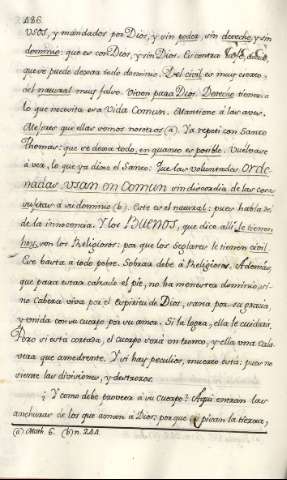 186.
usos, y mandados por Dios, y sin poder, sin derecho y sin
dominio: que es con Dios, y sin Dios. Es contra
que se puede dexar todo dominio. Del civil es muy cierto.
del natural muy falso. Viven para Dios. Derecho tienen a
lo que necesita esa Vida Comun. Mantiene à las aves.
Mejores que ellas somos nosotros (a). Ya repetì con Santo
Thomas: que se dexa todo, en quanto es posible. Vuelvase
à ver, lo que ya dixe el Santo: Que las voluntades orde-
nadas, usan en Comun sin discordia de las cosas
sujetas a su dominio (b). Este es el natural: pues habla
de la innocencia. Y los BUENOS, que dice alli le tienen
hoy, son los Religiosos: por que los seglares le tienen civil.
Ese basta a todo pobre. Sobrar debe à Religiosos. Ademàs,
que para estar calzado el pie, no ha menester dominio, si-
no cabeza viva por el espiritu de Dios, sana por su gracia,
y unida con su cuerpo por su amor. Si la logra, ella le cuidarà,
Pero si està cortada, el cuerpo serà un tronco, y ella una cala-
vera que amedrente. Y si hay peculios, muerto està: pues no
siente las divisiones, y destrozos.
¿Y como debe proveer à su cuerpo? Aqui entran las
anchuras de los que aman a Dios; porque pisan la tierra,
(a) Math. 6. (b) n. 244.